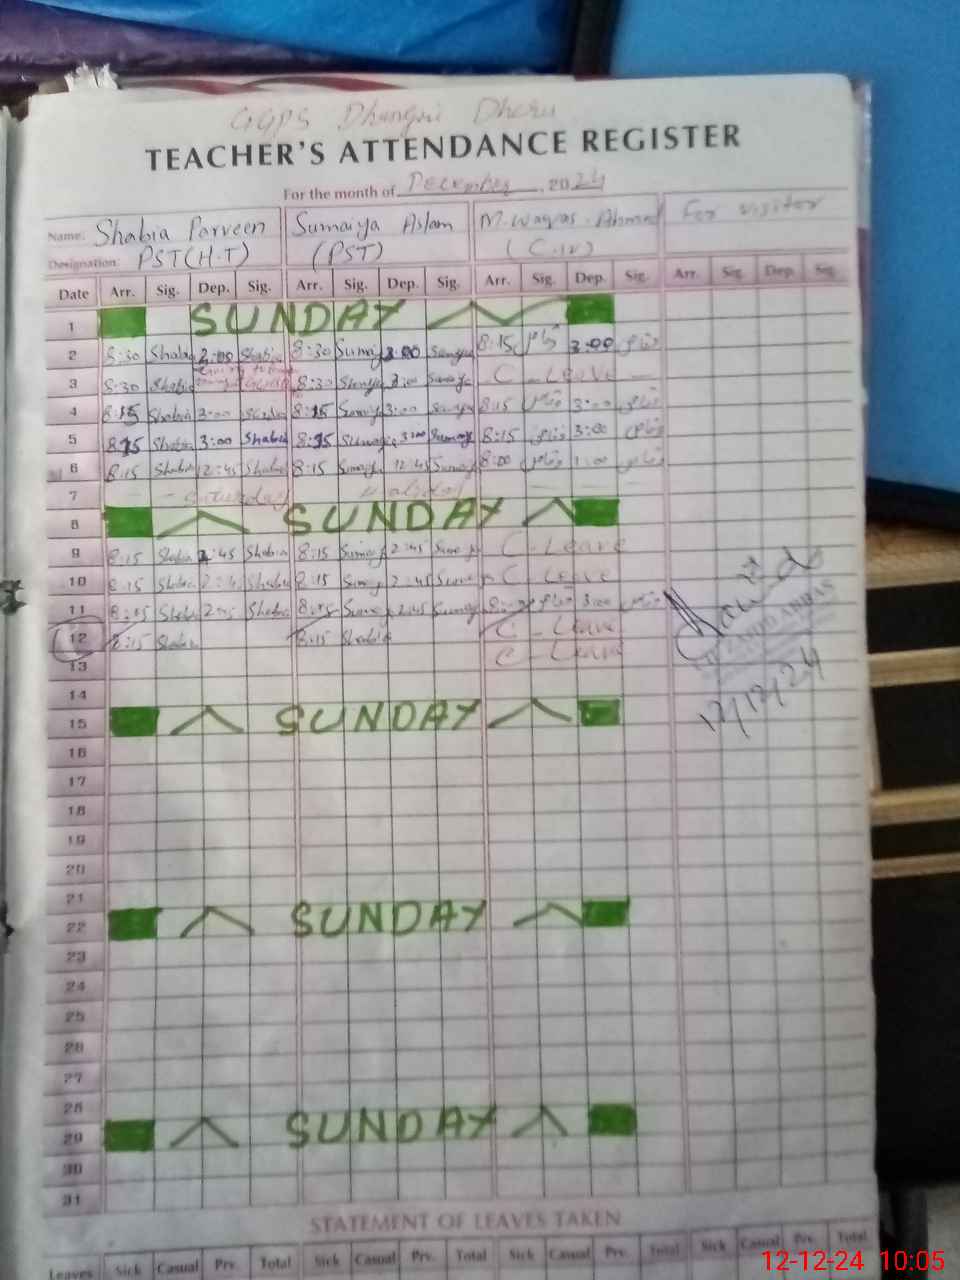 GGPS Dhangri Dheru
TEACHER'S ATTENDANCE REGISTER
For the month of December, 2024
Name: Shabia Parveen Sumaiya Aslam M. Waqas Ahmed For visitor
Designation: PST(H.T) (PST) (C.IV)
Date Arr. Sig. Dep. Sig. Arr. Sig. Dep. Sig. Arr. Sig. Dep. Sig. Arr. Sig. Dep. Sig.
1 SUNDAY
2 8:30 Shabia 2:00 Shabia 8:30 Sumaiya 3:00 Sumaiya 8:15 وقاص 3:00 وقاص
3 8:30 Shabia 8:30 Sumaiya 3:00 Sumaiya C-Leave
4 8:15 Shabia 3:00 Shabia 8:15 Sumaiya 3:00 Sumaiya 8:15 وقاص 3:00 وقاص
5 8:15 Shabia 3:00 Shabia 8:15 Sumaiya 3:00 Sumaiya 8:15 وقاص 3:00 وقاص
6 8:15 Shabia 12:45 Shabia 8:15 Sumaiya 12:45 Sumaiya 8:00 وقاص 1:00 وقاص
7 Saturday Holiday
8 SUNDAY
9 8:15 Shabia 2:45 Shabia 8:15 Sumaiya 2:45 Sumaiya C-Leave
10 8:15 Shabia 2:45 Shabia 8:15 Sumaiya 2:45 Sumaiya C-Leave
11 8:15 Shabia 2:45 Shabia 8:15 Sumaiya 2:45 Sumaiya وقاص 3:00 وقاص
12 8:15 Shabia 8:15 Shabia C-Leave
13 C-Leave
14
15 SUNDAY
16
17
18
19
20
21
22 SUNDAY
23
24
25
26
27
28
29 SUNDAY
30
31
12/12/24
STATEMENT OF LEAVES TAKEN
Leaves Sick Casual Prv. Total Sick Casual Prv. Total Sick Casual Prv. Total Sick Casual Prv. Total
12-12-24 10:05